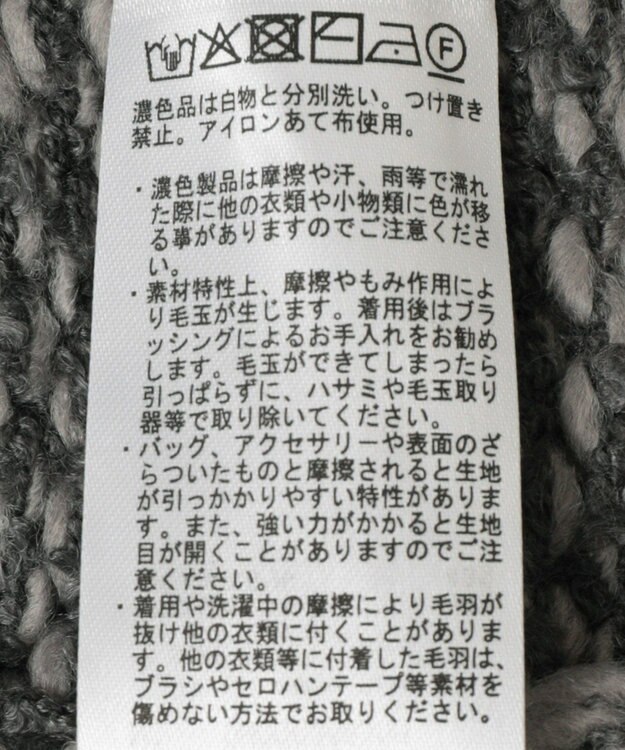 F
濃色品は白物と分別洗い。つけ置き
禁止。アイロンあて布使用。
・濃色製品は摩擦や汗、雨等で濡れ
た際に他の衣類や小物類に色が移
る事がありますのでご注意くださ
い。
・素材特性上、摩擦やもみ作用によ
り毛玉が生じます。着用後はブラ
ッシングによるお手入れをお勧め
します。毛玉ができてしまったら
引っぱらずに、ハサミや毛玉取り
器等で取り除いてください。
・バッグ、アクセサリーや表面のざ
らついたものと摩擦されると生地
が引っかかりやすい特性がありま
す。また、強い力がかかると生地
目が開くことがありますのでご注
意ください。
・着用や洗濯中の摩擦により毛羽が
抜け他の衣類に付くことがありま
す。他の衣類等に付着した毛羽は、
ブラシやセロハンテープ等素材を
傷めない方法でお取りください。